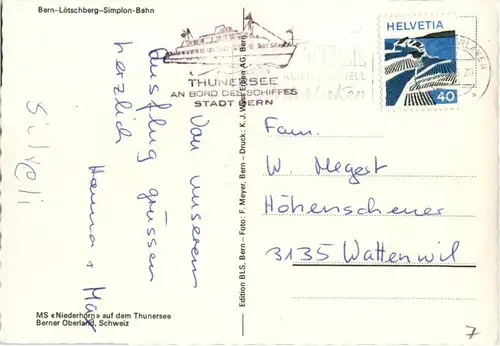 Bern–Lötschberg–Simplon-Bahn
Von unserem
Ausflug grüssen
herzlich
Hanna + Max
Silveli
MS «Niederhorn» auf dem Thunersee
Berner Oberland, Schweiz
Edition BLS, Bern – Foto: F. Meyer, Bern – Druck: K. J. Wyss Erben AG, Bern
THUNERSEE
AN BORD DES SCHIFFES
STADT BERN
HELVETIA
40
Fam.
W. Megert
Höhenscheuer
3135 Wattenwil
7